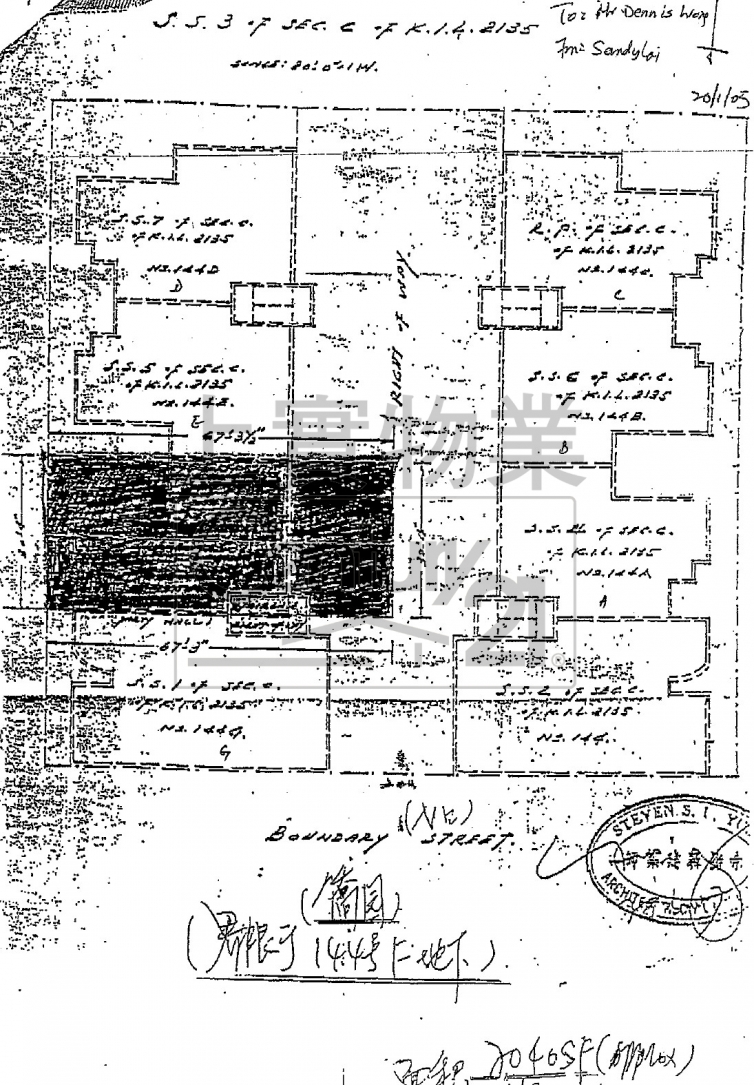 S.S. 3 of SEC. C of K.I.L. 2135
To: Mr Dennis Wong
Fm: Sandy Lai
SCALE: 20'-0"=1 IN.
20/1/05
S.S. 7 of SEC. C.
of K.I.L. 2135
NO. 144D
D
R.P. of SEC. C.
of K.I.L. 2135
NO. 144C
C
RIGHT of WAY
S.S. 5 of SEC. C.
of K.I.L. 2135
NO. 144E.
E
67'-3½"
S.S. 6 of SEC. C.
of K.I.L. 2135
NO. 144B.
B
上實物業
of K.I.L. 2135
NO. 144A
A
21
67'-3"
S.S. 1 of SEC. C.
of K.I.L. 2135
NO. 144G.
G
S.S. 2 of SEC. C.
of K.I.L. 2135.
NO. 144.
BOUNDARY STREET.
STEVEN S. I.
ARCHITECT
(簡圖)
(界限街 144号F 地下)
面積 2040SF (approx)